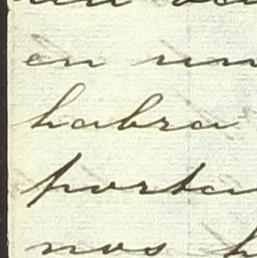 en un
habra
porta
nos h